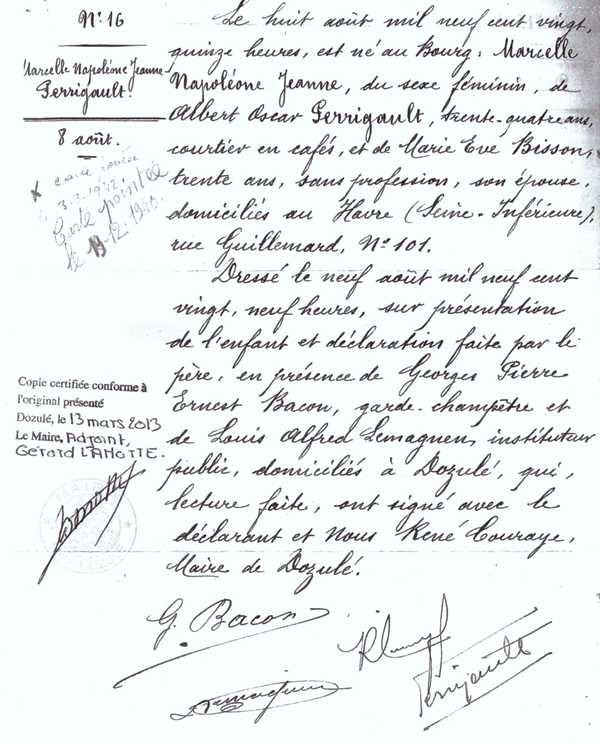 N° 16
Marcelle Napoléone Jeanne
Perrigault.
8 août.
3.3.1942.
Carte
le 19.12.
Copie certifiée conforme à
l'original présenté
Dozulé, le 13 mars 2013
Le Maire, Adjoint,
Gérard LAHOTTE.
Le huit août mil neuf cent vingt,
quinze heures, est né au Bourg, Marcelle
Napoléone Jeanne, du sexe féminin, de
Albert Oscar Perrigault, trente-quatre ans,
courtier en cafés, et de Marie Eve Bisson,
trente ans, sans profession, son épouse,
domiciliés au Havre (Seine-Inférieure),
rue Guillemard, N° 101.
Dressé le neuf août mil neuf cent
vingt, neuf heures, sur présentation
de l'enfant et déclaration faite par le
père, en présence de Georges Pierre
Ernest Bacon, garde-champêtre et
de Louis Alfred Lemagnen, instituteur
public, domiciliés à Dozulé, qui,
lecture faite, ont signé avec le
déclarant et Nous René Couraye,
Maire de Dozulé.
G. Bacon
Perrigault